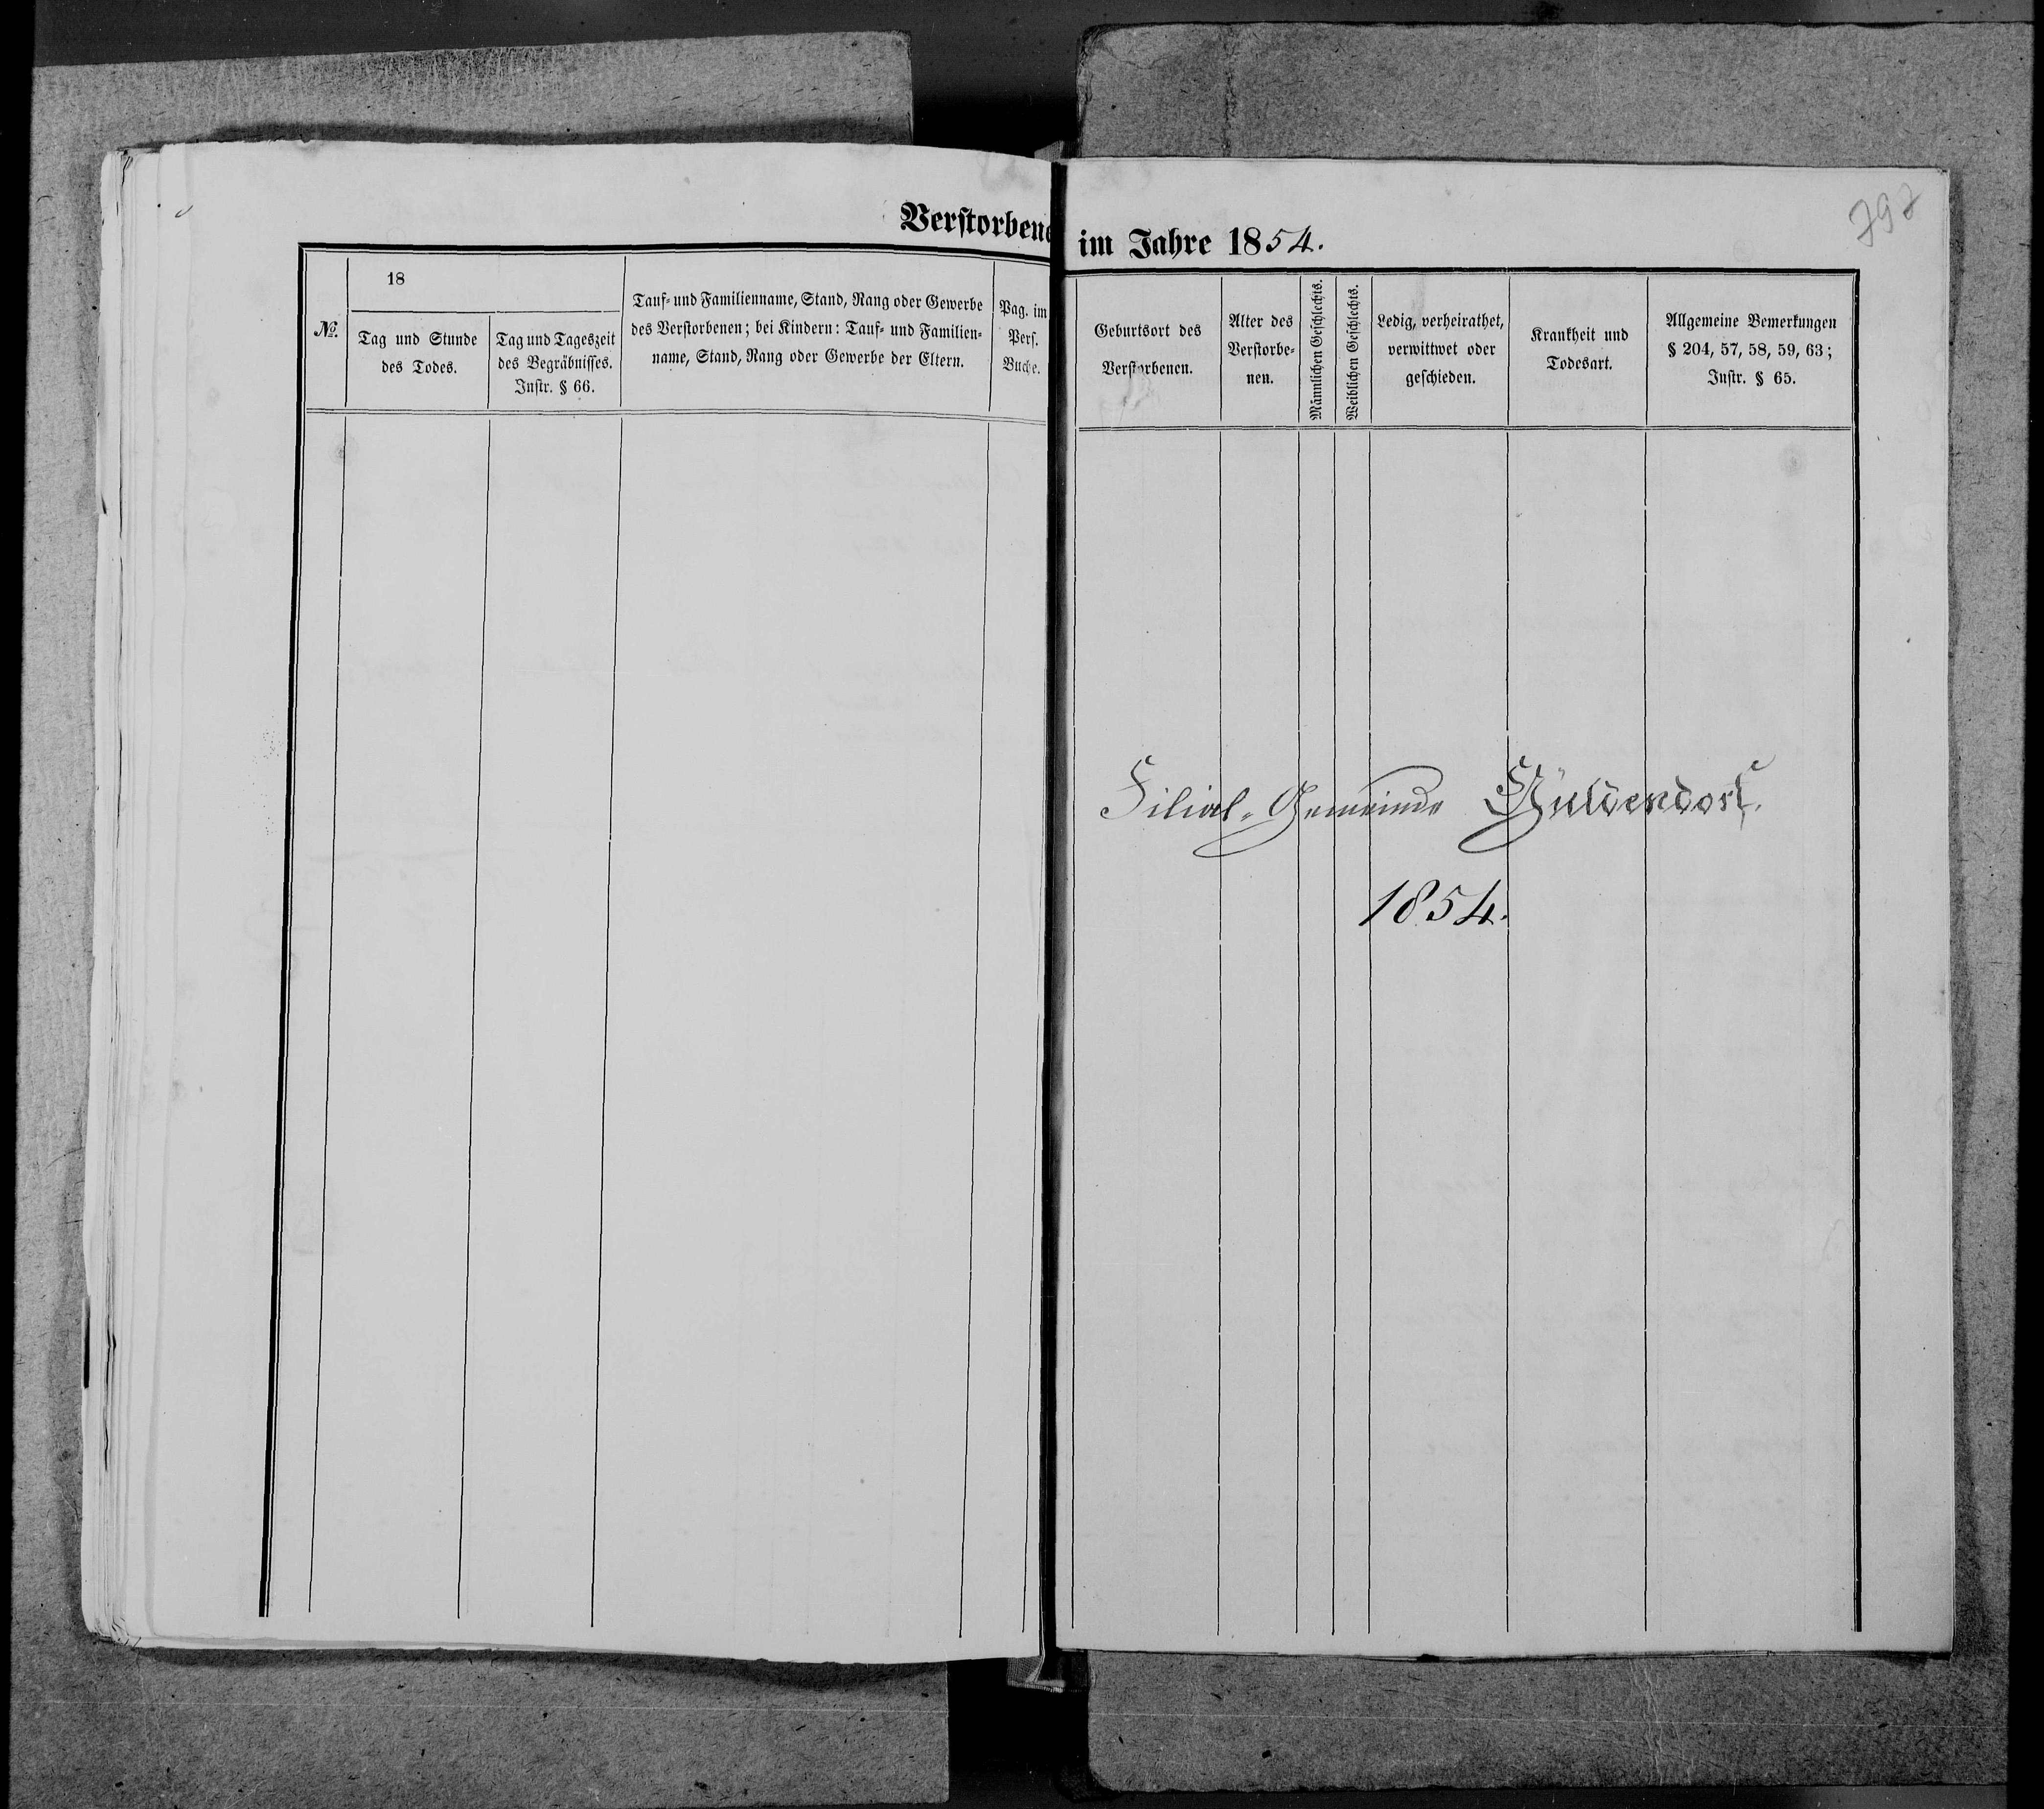 Verstorbene
im Jahre 1854.
797
№.
18
Tag und Stunde
des Todes.
Tag und Tageszeit
des Begräbnisses.
Instr. § 66.
Tauf- und Familienname, Stand, Rang oder Gewerbe
des Verstorbenen; bei Kindern: Tauf- und Familien-
name, Stand, Rang oder Gewerbe der Eltern.
Pag. im
Pers.
Buche.
Geburtsort des
Verstorbenen.
Alter des
Verstorbe-
nen.
Männlichen Geschlechts.
Weiblichen Geschlechts.
Ledig, verheirathet,
verwittwet oder
geschieden.
Krankheit und
Todesart.
Allgemeine Bemerkungen
§ 204, 57, 58, 59, 63;
Instr. § 65.
Filial-Gemeinde Güldendorf.
1854.